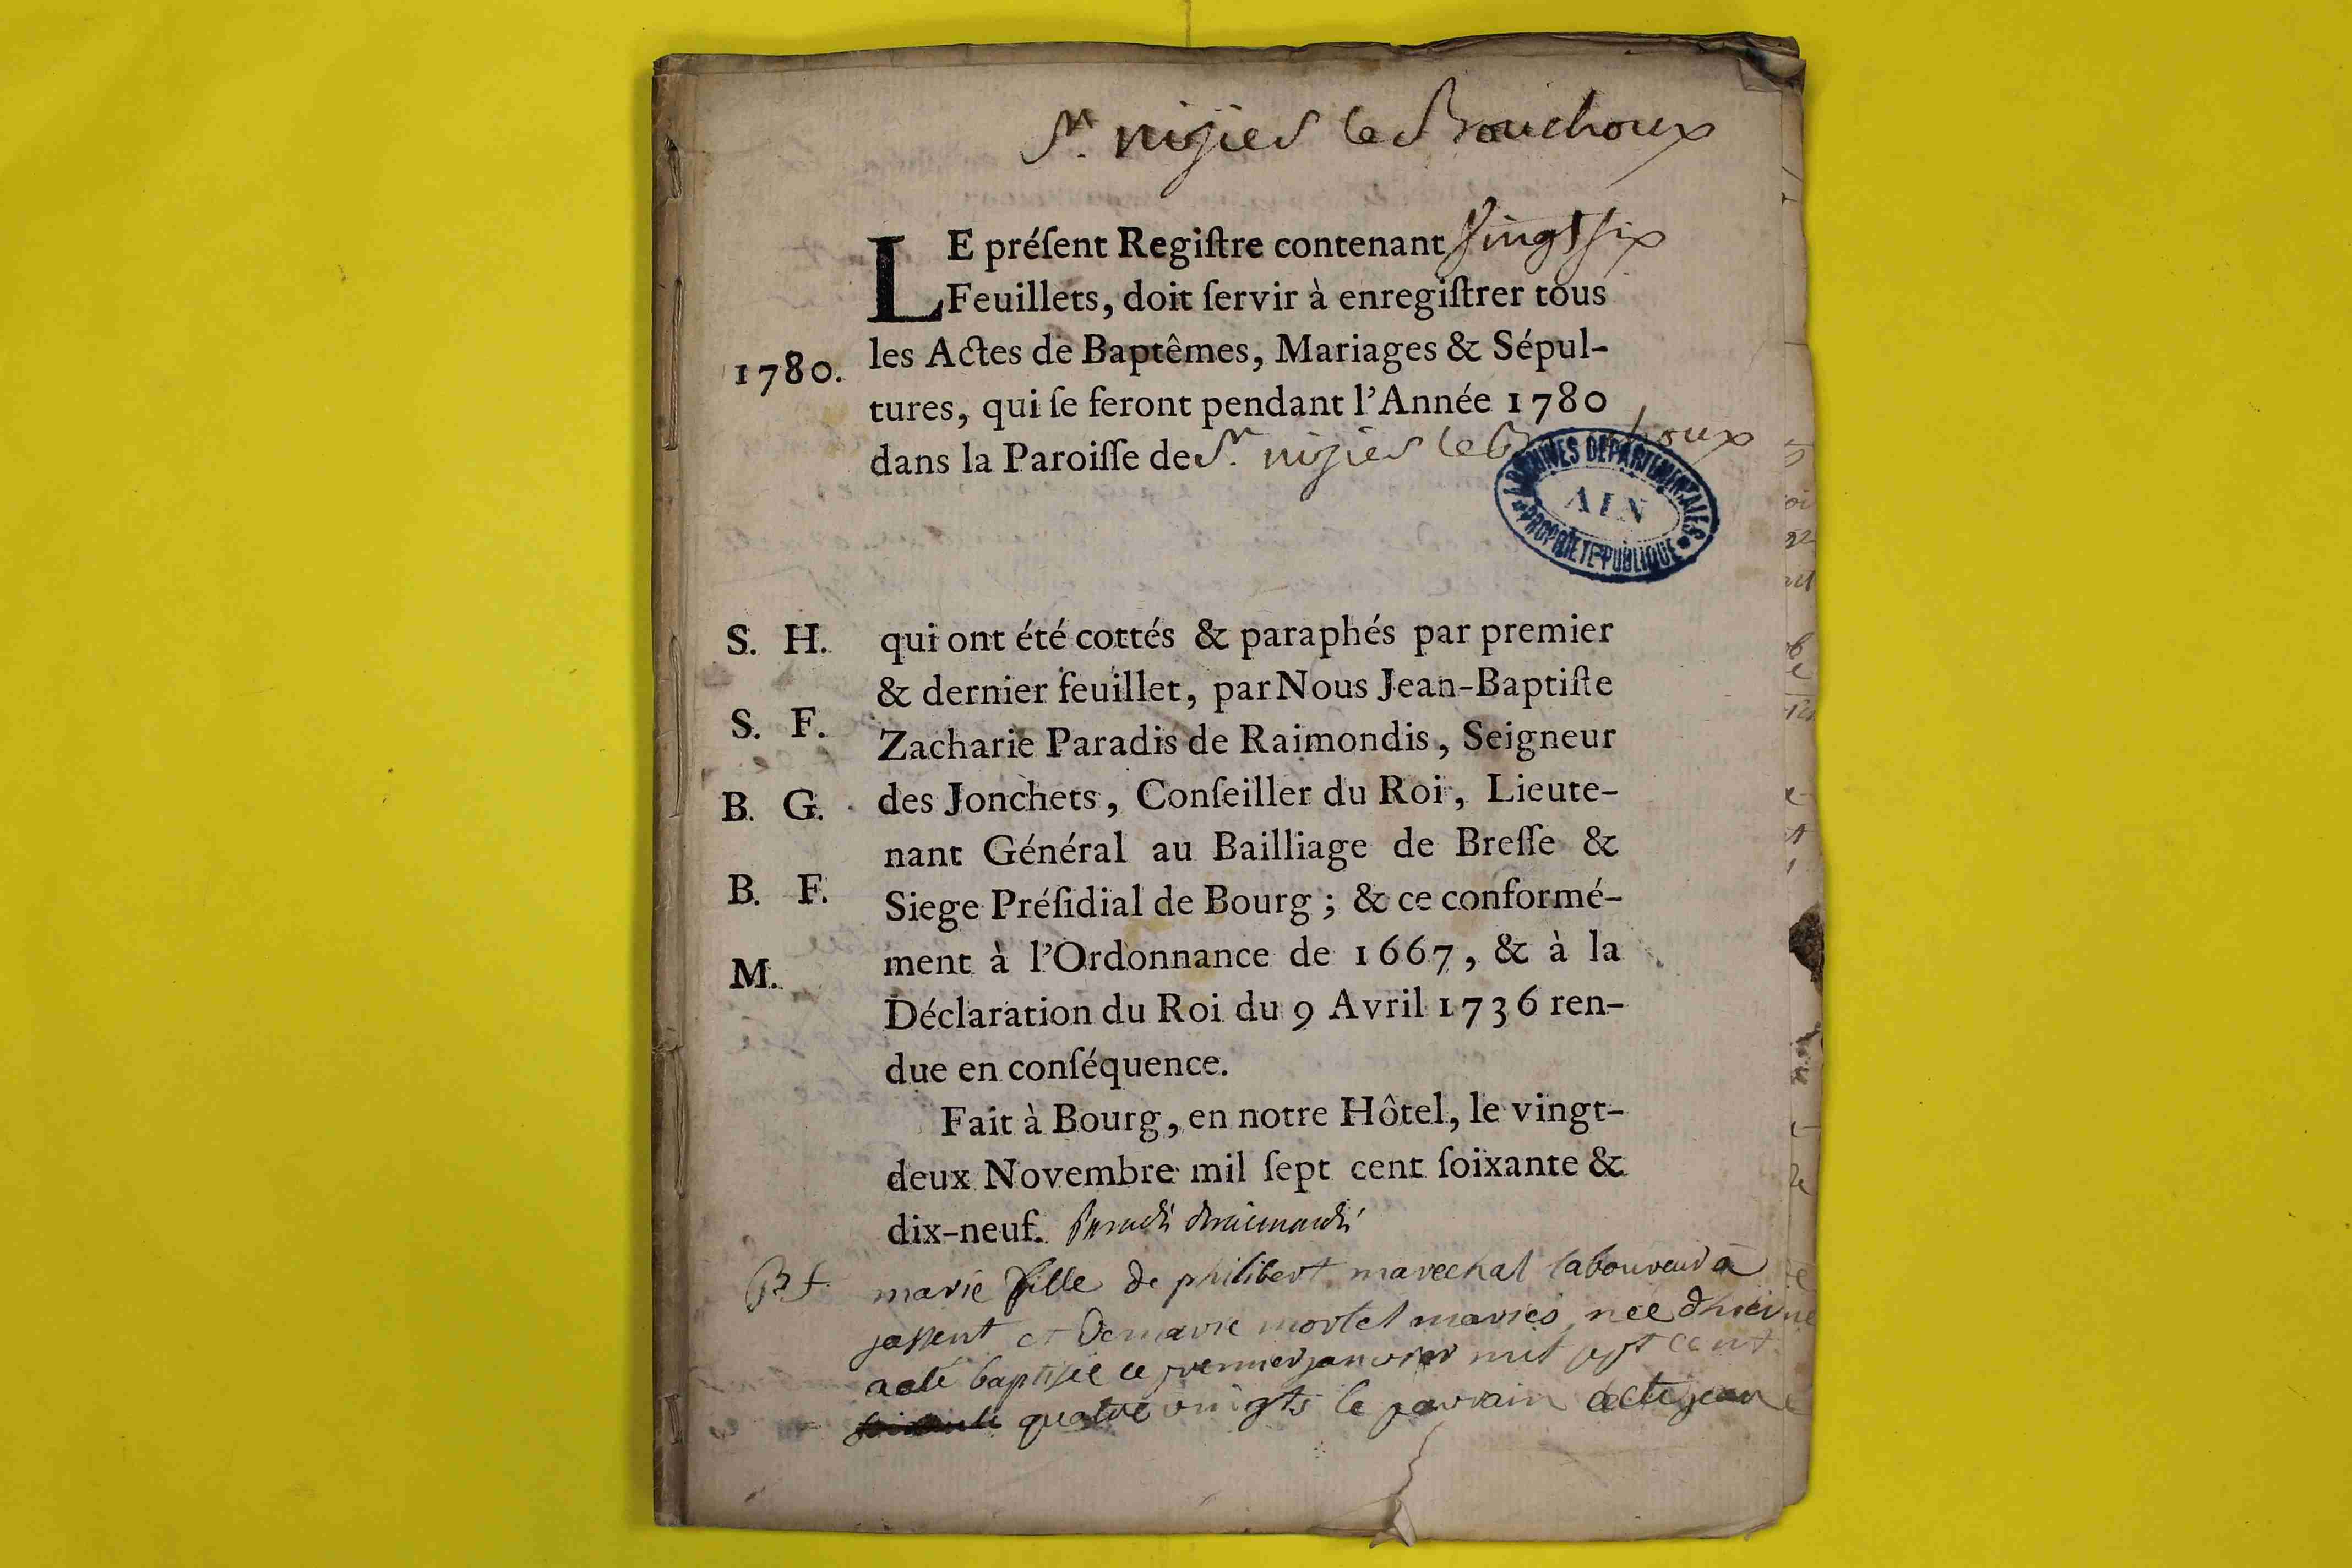 St. nizier le Bouchoux
LE préſent Regiſtre contenant vingt ſix
Feuillets, doit ſervir à enregiſtrer tous
1780. les Actes de Baptêmes, Mariages & Sépul-
tures, qui ſe feront pendant l'Année 1780
dans la Paroiſſe de St. nizier le Bouchoux
ARCHIVES DEPARTEMENTALES
AIN
PROPRIETE PUBLIQUE
S. H. qui ont été cottés & paraphés par premier
& dernier feuillet, par Nous Jean-Baptiſte
S. F. Zacharie Paradis de Raimondis, Seigneur
B. G. des Jonchets, Conſeiller du Roi, Lieute-
nant Général au Bailliage de Breſſe &
B. F. Siege Préſidial de Bourg ; & ce conformé-
M. ment à l'Ordonnance de 1667, & à la
Déclaration du Roi du 9 Avril 1736 ren-
due en conſéquence.
Fait à Bourg, en notre Hôtel, le vingt-
deux Novembre mil ſept cent ſoixante &
dix-neuf. Paradis deraimondis
B f. marie fille de philibert marechal laboureur a
et de marie mortel mariés, née d'hier
a eté baptisée ce premier janvier mil sept cent
quatre vingts le parrain a eté jean